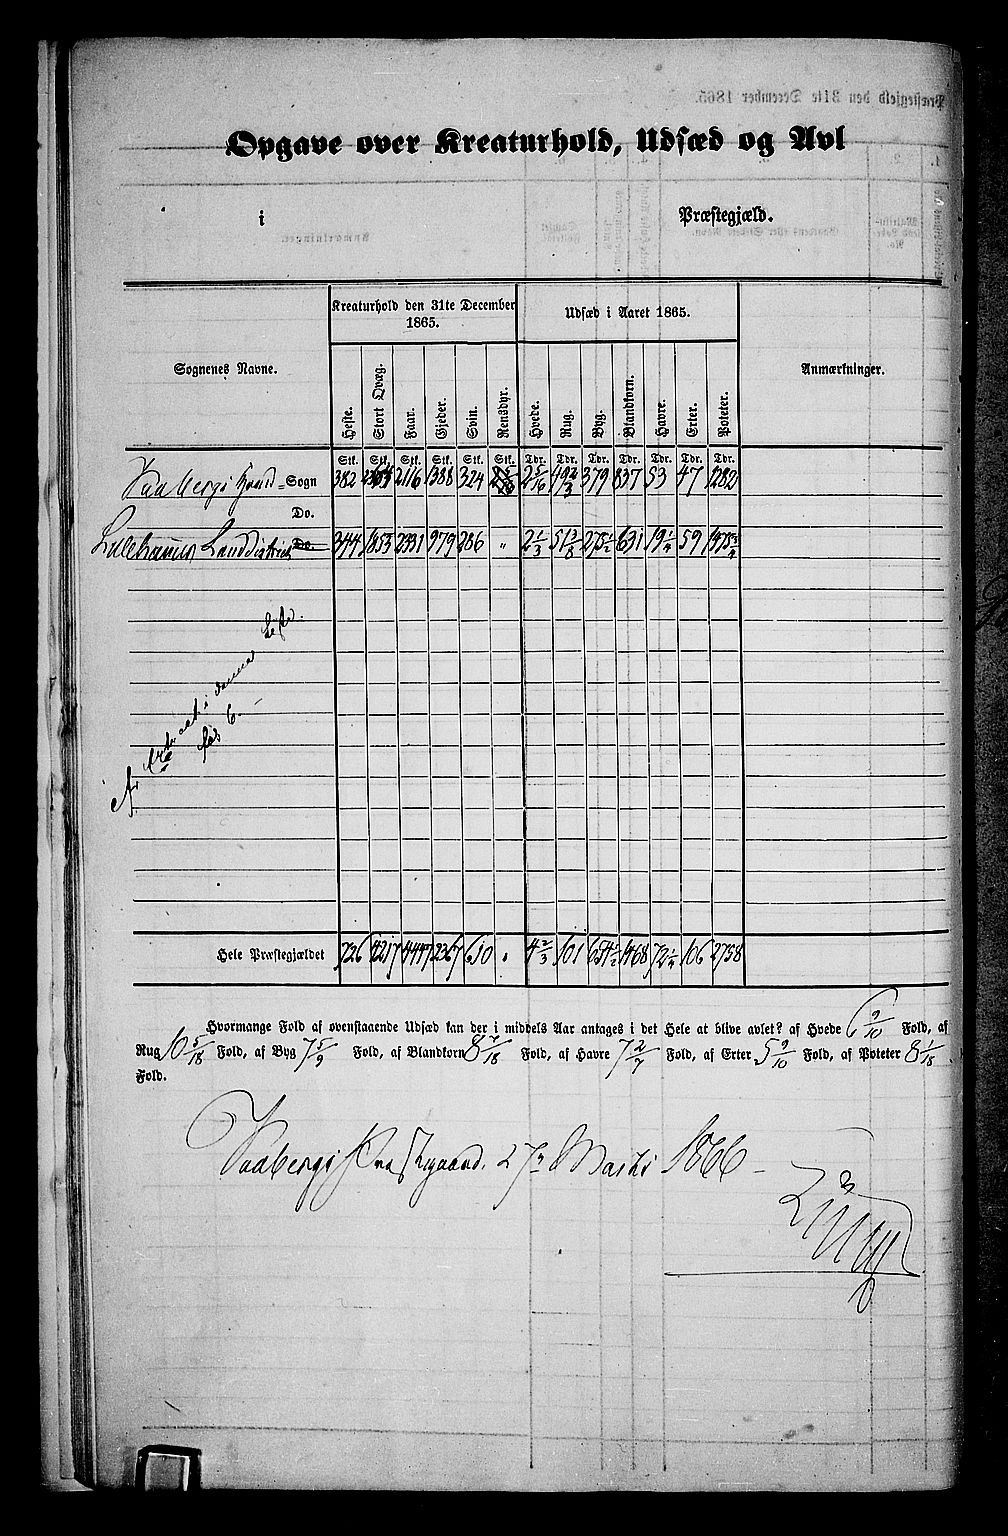 Opgave over Kreaturhold, Udsæd og Avl
i Præstegjæld.
Sognenes Navne. Kreaturhold den 31te December 1865. Udsæd i Aaret 1865. Anmærkninger.
Heste. Stort Qvæg. Faar. Gjeder. Svin. Rensdyr. Hvede. Rug. Byg. Blandkorn. Havre. Erter. Poteter.
Stk. Stk. Stk. Stk. Stk. Stk. Tdr. Tdr. Tdr. Tdr. Tdr. Tdr. Tdr.
Faabergs Hoved-Sogn 382 2116 1388 324 2 5/16 49 2/3 379 837 53 47 1282
Do.
Lillehammer Landdistrict Do. 344 1853 2331 979 286 " 2 1/3 51 1/3 275 1/2 631 19 1/4 59 1475 3/4
i denne Liste.
6
Hele Præstegjældet 726 4217 4447 2367 610 " 4 2/3 101 654 1/2 1468 72 1/4 106 2758
Hvormange Fold af ovenstaaende Udsæd kan der i middels Aar antages i det Hele at blive avlet? af Hvede 6 9/10 Fold, af
Rug 10 5/18 Fold, af Byg 7 5/9 Fold, af Blandkorn 8 7/18 Fold, af Havre 7 2/7 Fold, af Erter 5 9/10 Fold, af Poteter 8 1/18
Fold.
Faabergs Præstegaard. 27 Marts 1866